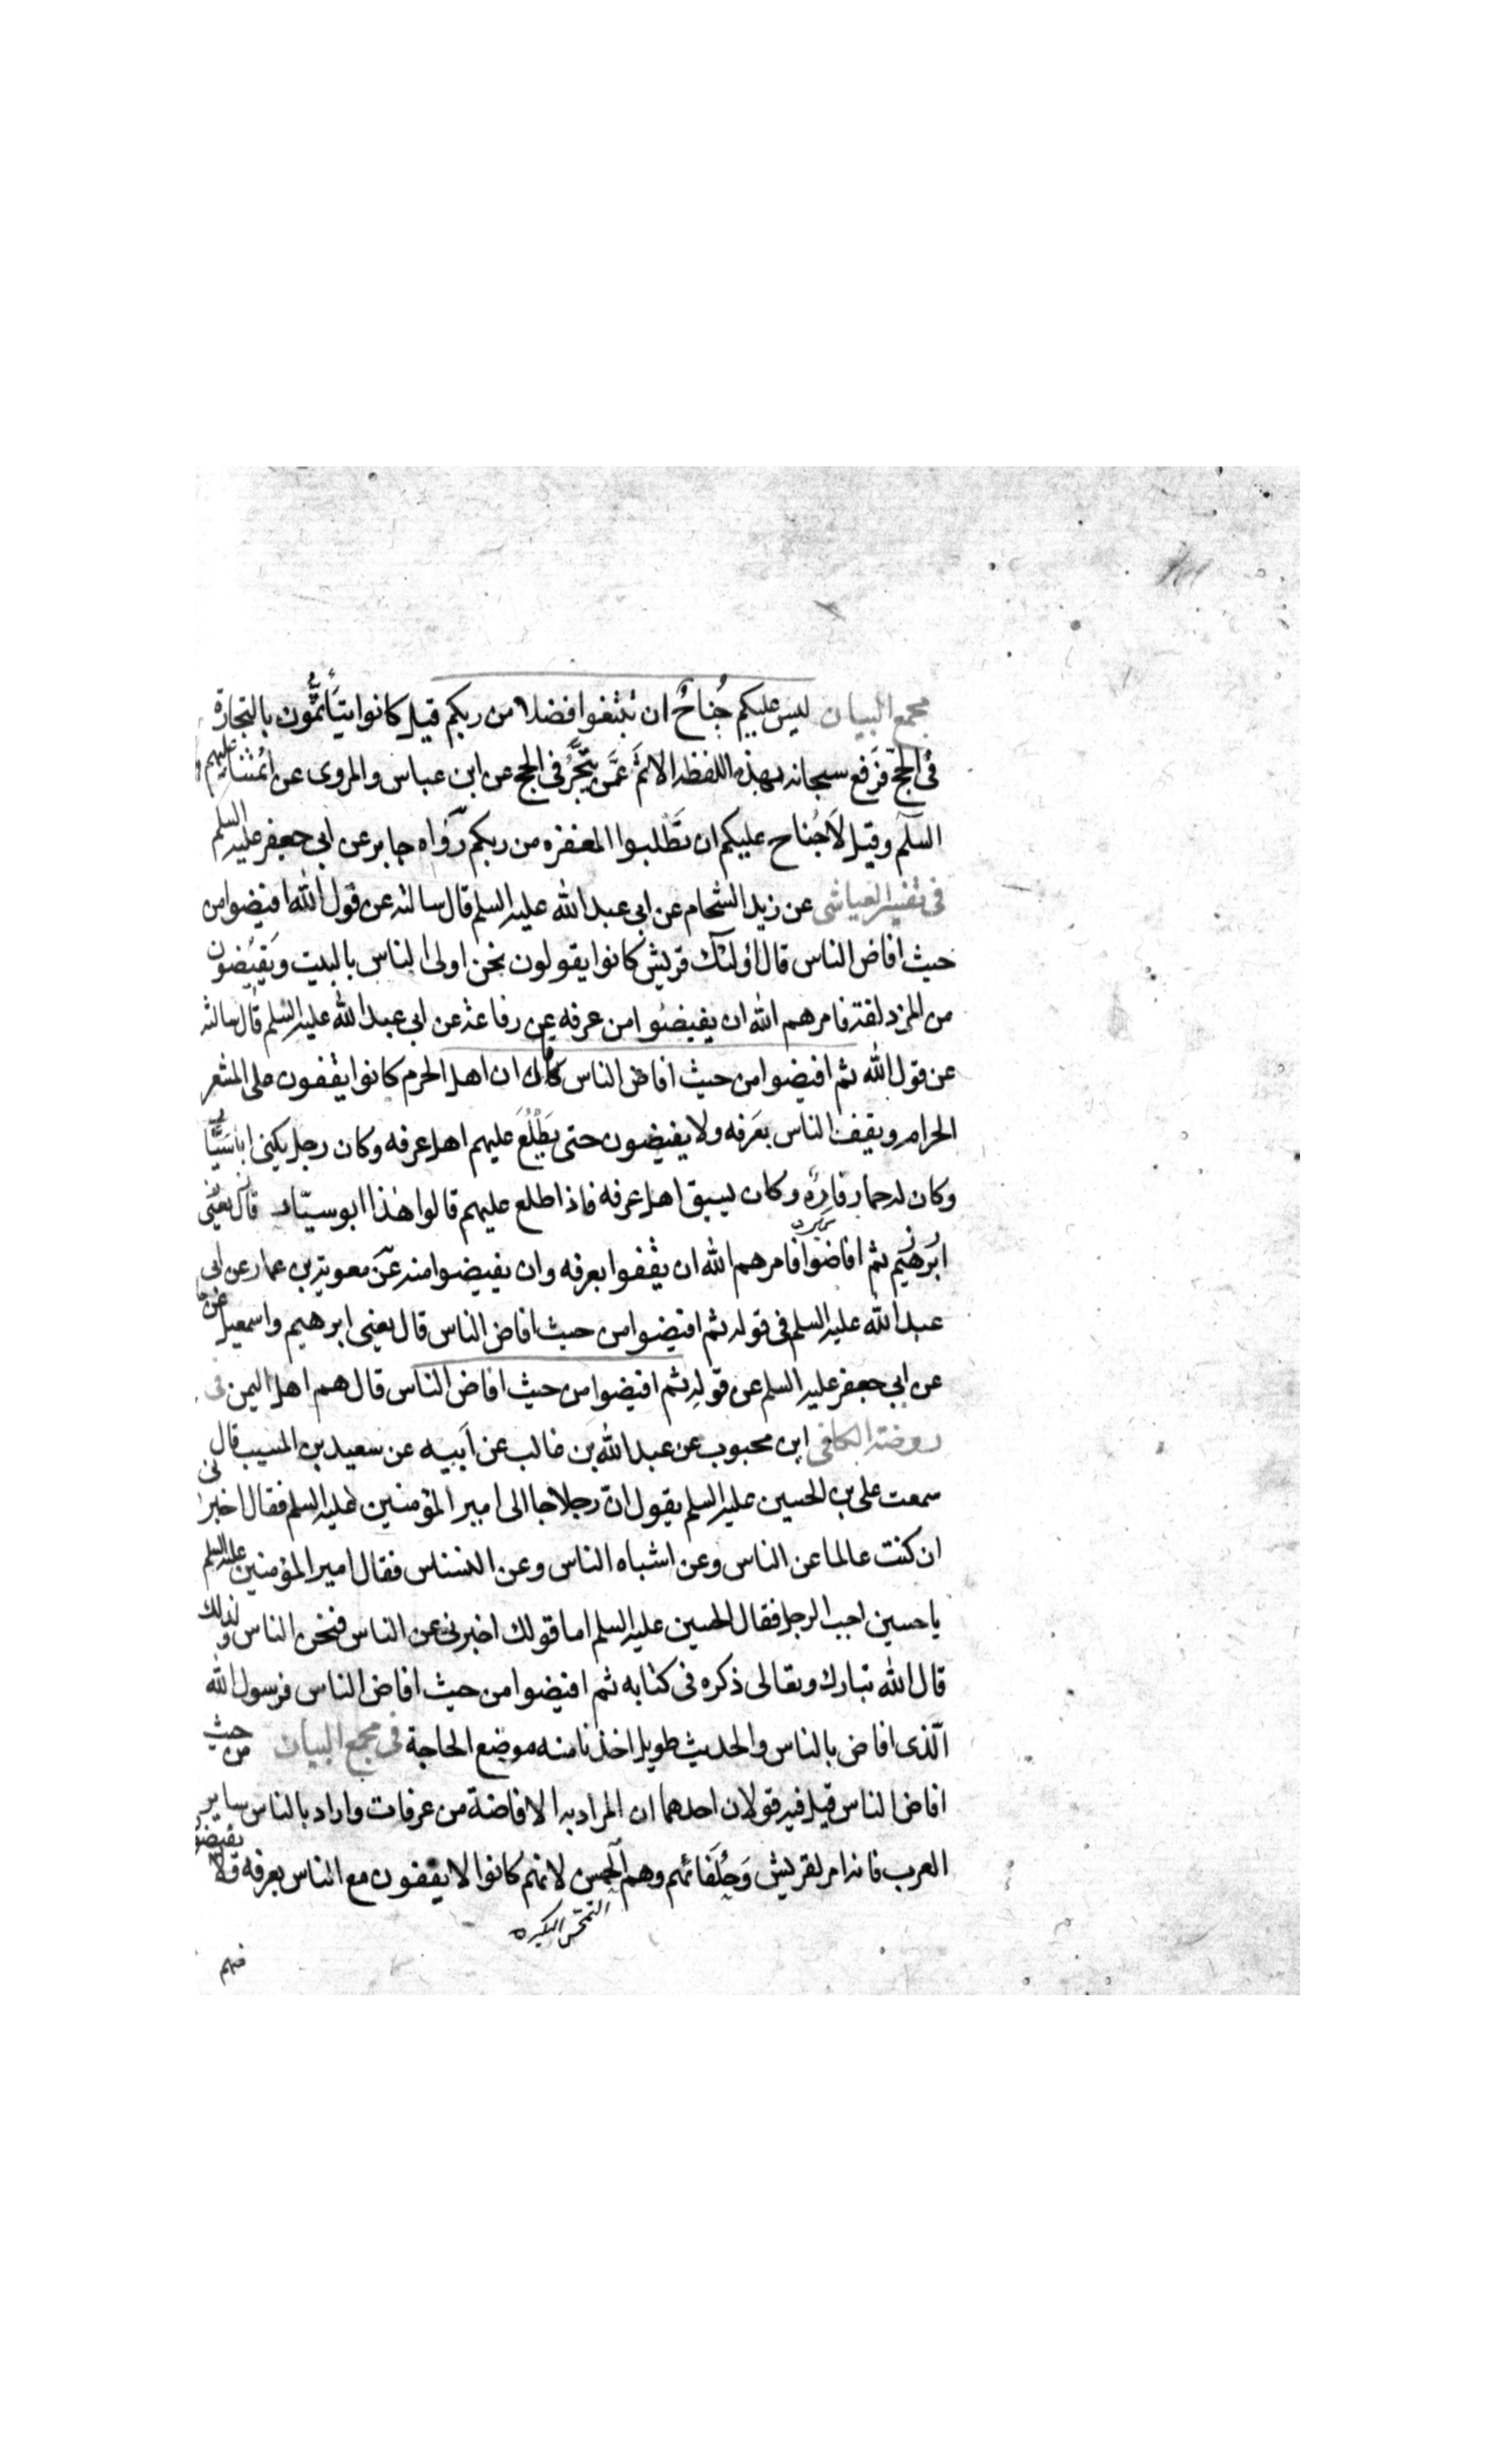 مجمع البيان ليس عليكم جُناحٌ ان تبتغوا فضلا من ربكم قيل كانوا يتأثّمون بالتجارة
فى الحجّ فرَفع سبحانه بهذه اللفظه الاثمَ عمّن يتّجرُ فى الحج عن ابن عباس والمروى عن ائمتنا عليهم
السلم وقيل لَا جُناح عليكم ان تَطلبوا المغفره من ربكم رَوَاه جابر عن ابى جعفر عليه السلم
فى تفسير العياشى عن زيد الشحام عن ابى عبد الله عليه السلم قال سالته عن قول الله افيضوا من
حيث افاض الناس قال اولئك قريش كانوا يقولون نحن اولى الناس بالبيت ويَفيُضون
من المزدلفة فامرهم الله ان يفيضوا من عرفه عن رفاعة عن ابى عبد الله عليه السلم قال سالته
عن قول الله ثم افيضوا من حيث افاض الناس قال ان اهل الحرم كانوا يقفون على المشعر
الحرام ويقف الناس بعَرفه ولا يفيضون حتى يَطَّلُعَ عليهم اهل عرفه وكان رجل يكنى ابا سَيّا
وكان له حمار فارِه وكان يسبق اهل عرفه فاذا اطلع عليهم قالوا هذا ابو سيّار
ثم افاضوا فامرهم الله ان يقفوا بعرفه وان يفيضوا منه عن معوية بن عمار عن ابى
عبد الله عليه السلم فى قوله ثم افيضوا من حيث افاض الناس قال يعنى ابرهيم واسمعيل
عن ابى جعفر عليه السلم عن قوله ثم افيضوا من حيث افاض الناس قال هم اهل اليمن فى
روضة الكافى ابن محبوب عن عبد الله بن غالب عن اَبيه عن سعيد بن المسيب قال
سمعت على بن الحسين عليه السلم يقول انّ رجلا جا الى امير المؤمنين عليه السلم فقال اخبرنى
ان كنت عالما عن الناس وعن اشباه الناس وعن النسناس فقال امير المؤمنين عليه السلم
يا حسين اجب الرجل فقال الحسين عليه السلم اما قولك اخبرنى عن الناس فنحن الناس ولذلك
قال الله تبارك وتعالى ذكره فى كتابه ثم افيضوا من حيث افاض الناس فرسول الله
الّذى افاض بالناس والحديث طويل اخذنا منه موضع الحاجة فى مجمع البيان من حيث
افاض الناس قيل فيه قولان احدهما ان المراد به الافاضة من عرفات واراد بالناس ساير
العرب فانه امر لقريش وَحُلَفائهم وهم الحمس لانهم كانوا لا يقفون مع الناس بعرفه ولا يفيضو